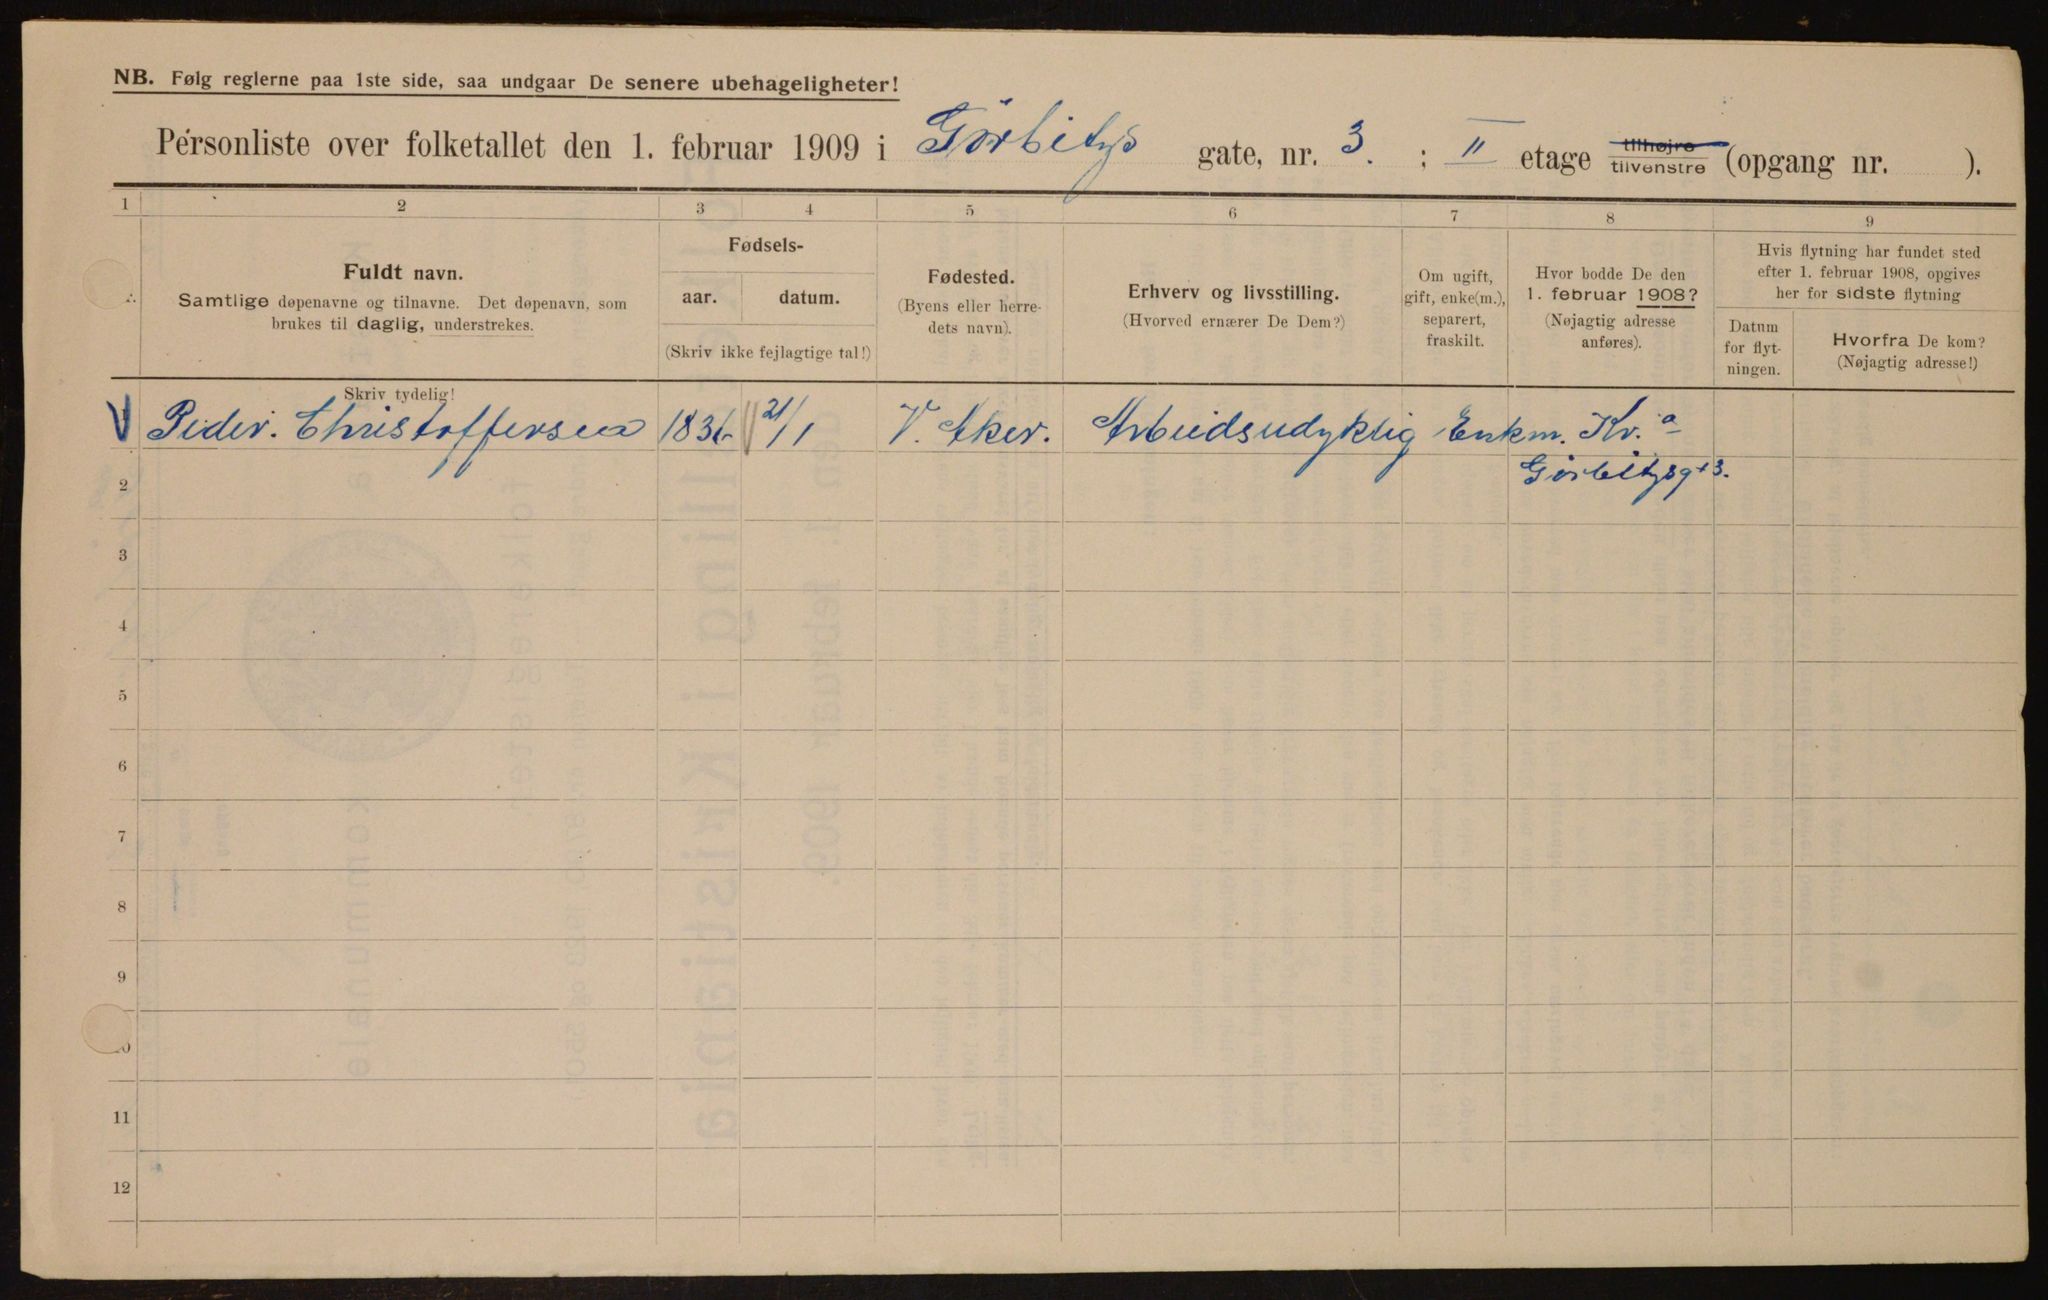 NB. Følg reglerne paa 1ste side, saa undgaar De senere ubehageligheter!
Personliste over folketallet den 1. februar 1909 i Gørbitys gate, nr. 3. ; II etage tilhøjre tilvenstre (opgang nr. ).
1 2 3 4 5 6 7 8 9
Fuldt navn.
Samtlige døpenavne og tilnavne. Det døpenavn, som
brukes til daglig, understrekes.
Fødsels-
aar. datum.
(Skriv ikke fejlagtige tal!)
Fødested.
(Byens eller herre-
dets navn).
Erhverv og livsstilling.
(Hvorved ernærer De Dem?)
Om ugift,
gift, enke(m.),
separert,
fraskilt.
Hvor bodde De den
1. februar 1908?
(Nøjagtig adresse
anføres).
Hvis flytning har fundet sted
efter 1. februar 1908, opgives
her for sidste flytning
Datum
for flyt-
ningen.
Hvorfra De kom?
(Nøjagtig adresse!)
Skriv tydelig!
Peder. Christoffersen 1831 21/1 V. Aker. Arbeidsudyktig Enkm. Kr.a
2 Gørbitysgt 3.
3
4
5
6
7
8
9
10
11
12